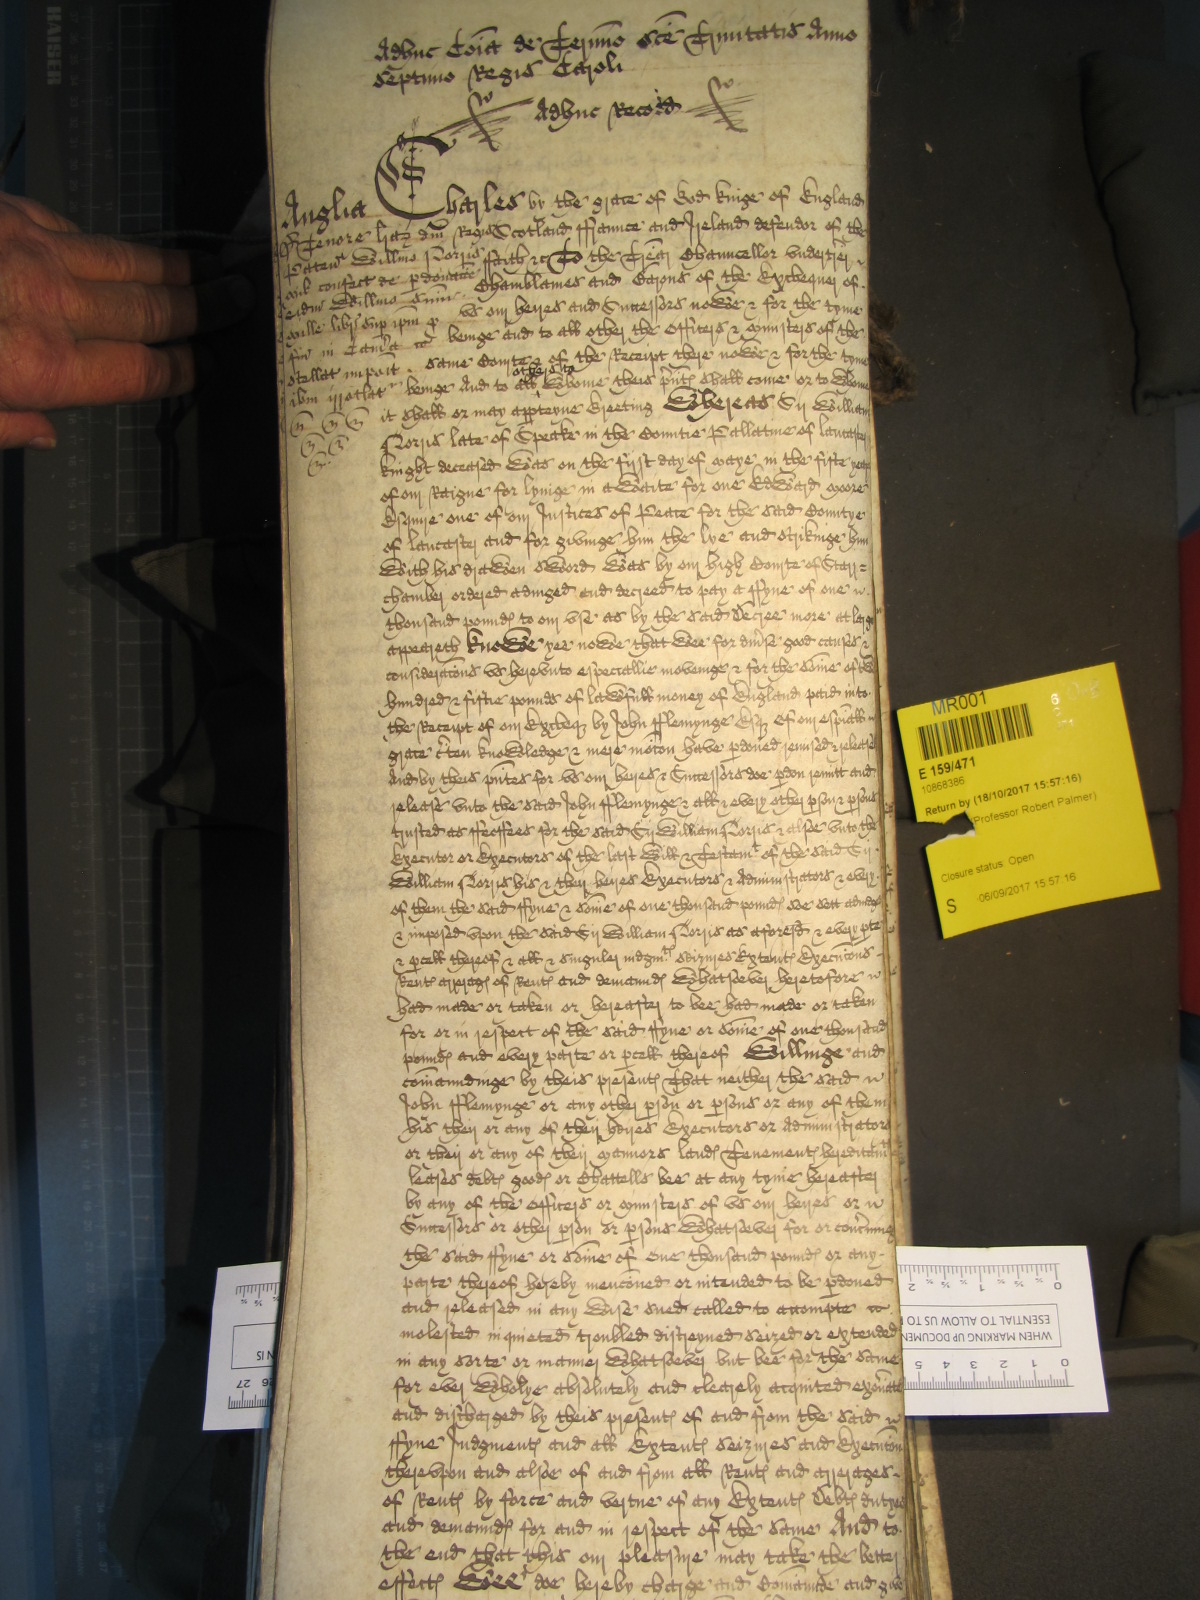 Adhuc Coia de Termio Sce Trinitatis Anno
Septimo Regis Caroli
Adhuc Record
Anglia
Charles by the grace of God kinge of England
Scotland ffraunce and Ireland defendor of the
ffaith &c To the Trer Chauncellor undertrer
Chamblaines and Barons of the Exchequer of
us our heires and Successors nowe & for the tyme
beinge and to all other the Officers & ministers of the
same Courte & of the Receipt there nowe & for the tyme
beinge And to all others to whome theis pnts shall come or to whome
it shall or may appteyne Greeting Whereas Sir William
Norris late of Speake in the Countie Pallatine of Lancaster
knight deceased was on the first day of Maye in the fifte yeare
of our Raigne for lyinge in awaite for one Edward Moore
Esquire one of our Justices of Peace for the said Countye
of Lancaster and for givinge him the lye and strikinge him
with his drawen sword was by our high Courte of Starr=
chamber ordered adiuged and decreed to pay a ffyne of one
thousand pounds to our use as by the said Decree more at large
appeareth knowe yee nowe that wee for divse good causes &
consideracons us hereunto especiallie moveinge & for the some of
hundred & fiftie pounds of lawfull money of England paid into
the Receipt of our Excheqr by John fflemynge Esqr Of our espiall
grace cten knowledge & mere mocon have pdoned remised & released
And by theis pntes for us our heires & Successors doe pdon remitt and
release unto the said John fflemynge & all & every other pson & psons
trusted as ffeoffees for the said Sir William Norris & alsoe unto the
Executor or Executors of the last Will & Testamt of the said Sir
William Norris his & their heires Executors & Administrators & every
of them the said ffyne & some of one thousand pounds soe sett adiudged
& imposed upon the said Sir William Norris as aforesd & every pte
& pcell thereof & all & singuler iudgmts seizures Extents Execucons
Rents arrerags of Rents and demaunds whatsoever heretofore
had made or taken or hereafter to bee had made or taken
for or in respect of the said ffyne or some of one thousand
pounds and every parte or pcell thereof Willinge and
comaundinge by theis presents That neither the said
John fflemynge or any other pson or psons or any of them
his their or any of their heires Executors or Administrators
or their or any of their mannors lands Tenements hereditamts
leases debts goods or Chattells bee at any tyme hereafter
by any of the Officers or ministers of us our heires or
Successors or other pson or psons whatsoever for or concerninge
the said ffyne or some of one thousand pounds or any
parte thereof hereby mencioned or intended to be pdoned
and released in any wise sued called to accompte
molested inquieted troubled distreyned seized or extended
in any sorte or manner whatsoever but bee for the same
for ever wholye absolutely and clearely acquited exonated
and discharged by theis presents of and from the said
ffyne Judgments and all Extents seizures and Execucon
thereupon and alsoe of and from all Rents and arrerages
of Rents by force and vertue of any Extents Debts dutyes
and demaunds for and in respect of the same And to
the end that this our pleasure may take the better
effects Wee doe hereby charge and Comaunde and give
MR001
6
E 159/471
10868386
Return by (18/10/2017 15:57:16)
Professor Robert Palmer)
Closure status Open
S 06/09/2017 15:57:16
WHEN MARKING UP DOCUMEN
ESENTIAL TO ALLOW US TO
0 1 2
0 1 2 3 4 5
N IS
27 26